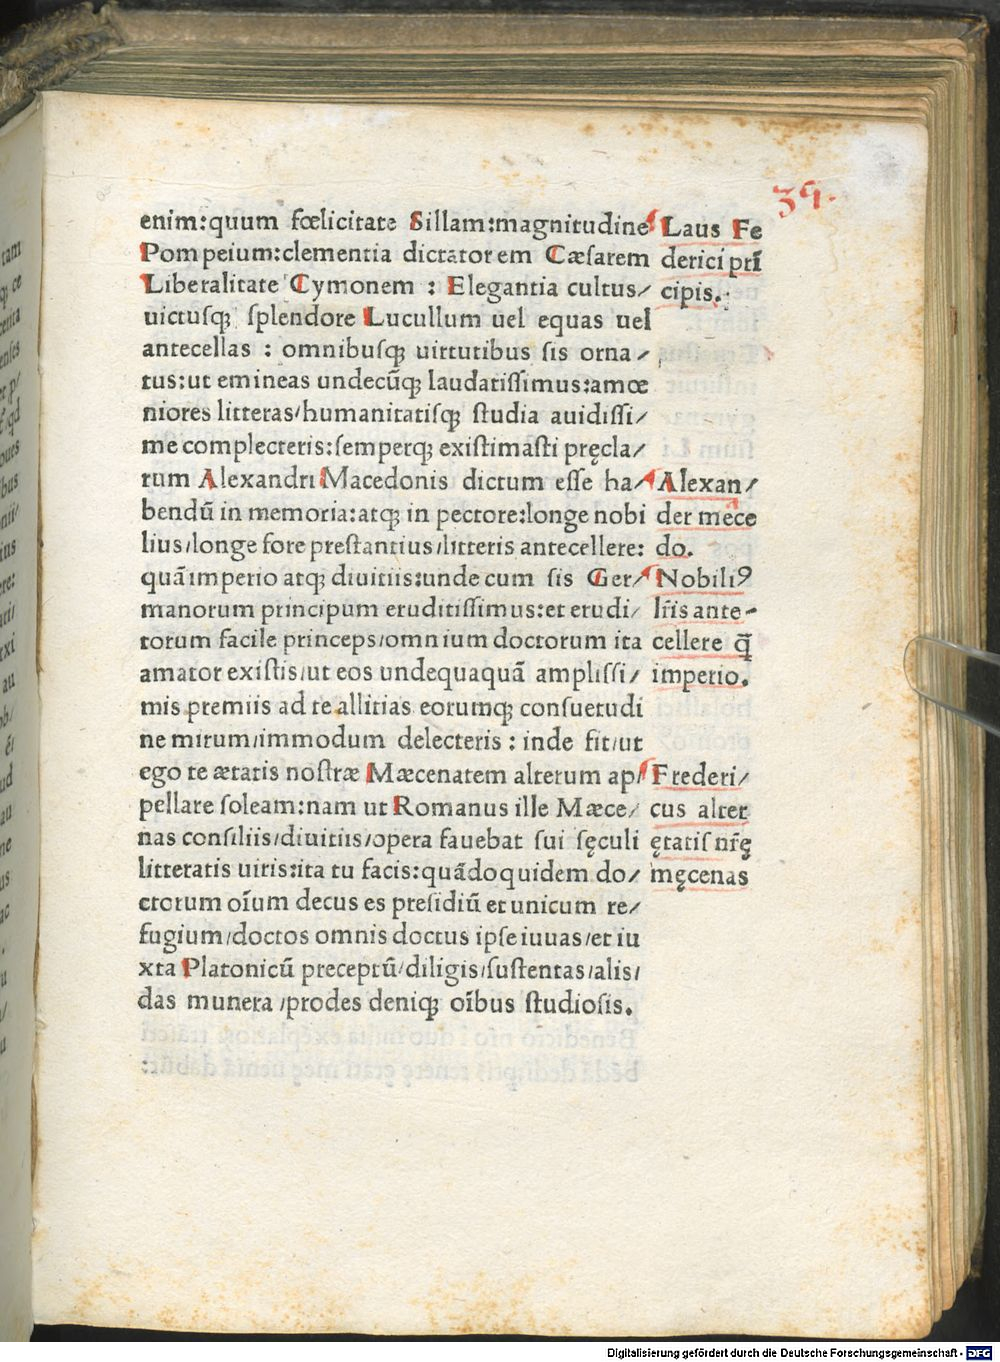 39.
enim:quum fœlicitate Sillam:magnitudine
Pompeium:clementia dictatorem Cæsarem
Liberalitate Cymonem : Elegantia cultus/
uictusqꝫ splendore Lucullum uel equas uel
antecellas : omnibusqꝫ uirtutibus sis orna/
tus:ut emineas undecūqꝫ laudatissimus:amœ
niores litteras/humanitatisqꝫ studia auidissi/
me complecteris:semperqꝫ existimasti pręcla/
rum Alexandri Macedonis dictum esse ha/
bendū in memoria:atqꝫ in pectore:longe nobi
lius/longe fore prestantius/litteris antecellere:
quā imperio atqꝫ diuitiis:unde cum sis Ger/
manorum principum eruditissimus:et erudi/
torum facile princeps/omnium doctorum ita
amator existis/ut eos undequaquā amplissi/
mis premiis ad te allitias eorumqꝫ consuetudi
ne mirum/immodum delecteris : inde fit/ut
ego te ætatis nostræ Mæcenatem alterum ap/
pellare soleam:nam ut Romanus ille Mæce/
nas consiliis/diuitiis/opera fauebat sui sęculi
litteratis uiris:ita tu facis:quādoquidem do/
ctorum oīum decus es presidiū et unicum re/
fugium/doctos omnis doctus ipse iuuas/et iu
xta Platonicū preceptū/diligis/sustentas/alis/
das munera /prodes deniqꝫ oībus studiosis.
Laus Fe
derici prī
cipis.
Alexan/
der mace
do.
Nobiliꝰ
lr̄is ante-
cellere q̄
imperio.
Frederi/
cus alter
ętatis nr̄ę
męcenas
Digitalisierung gefördert durch die Deutsche Forschungsgemeinschaft - DFG